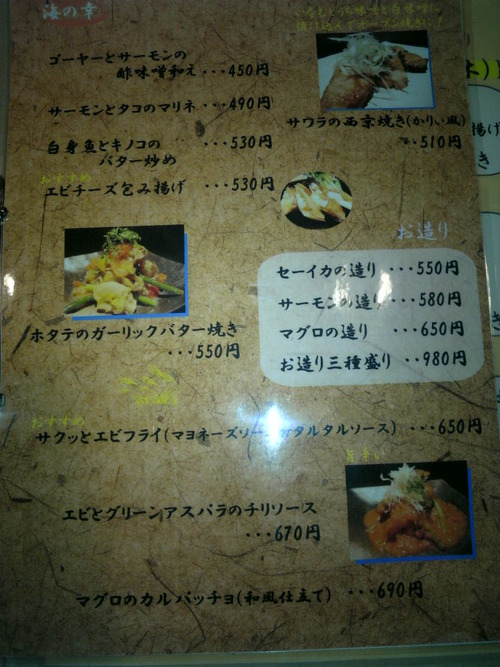 海の幸
ゴーヤーとサーモンの
酢味噌和え・・・450円
サーモンとタコのマリネ・・・490円
サワラの西京焼き(かりぃ風)
・・510円
白身魚とキノコの
・・・530円
バター炒め
おすすめ
エビチーズ包み揚げ ・・・530円
お造り
セーイカの造り ・・・550円
サーモンの造り ・・・580円
マグロの造り ・・・650円
お造り三種盛り ・・980円
ホタテのガーリックバター焼き
・・・550円
おすすめ
サクッとエビフライ(マヨネーズソー タルタルソース) ・・・650円
旨辛い
エビとグリーンアスパラのチリソース
・・・670円
マグロのカルパッチョ(和風仕立て) ・・・690円
揚げ
き